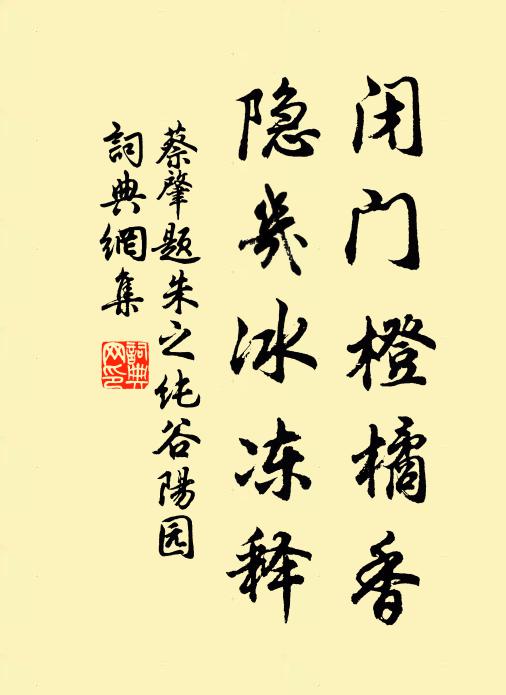 闭门橙橘香
隐几冰冻释
蔡肇题朱之纯谷陽园
詞典網集
詞典网印